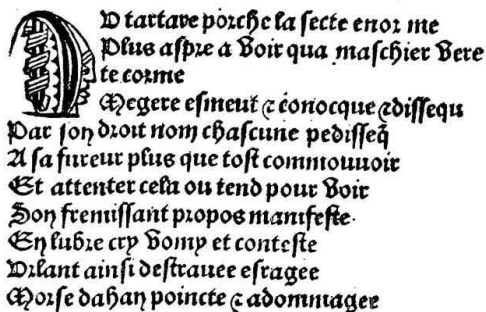 DU tartare porche la secte enorme
Plus aspre a voir qua maschier vere
te corme
Megere esmeut ⁊ conocque ⁊ dissequ
Par son droit nom chascune pedisseq̃
A sa fureur plus que tost commouuoir
Et attenter cela ou tend pour voir
Son fremissant propos manifeste.
En lubre cry vomy et conteste
Vrlant ainsi destrauee esragee
Morse dahan poincte ⁊ adommagee